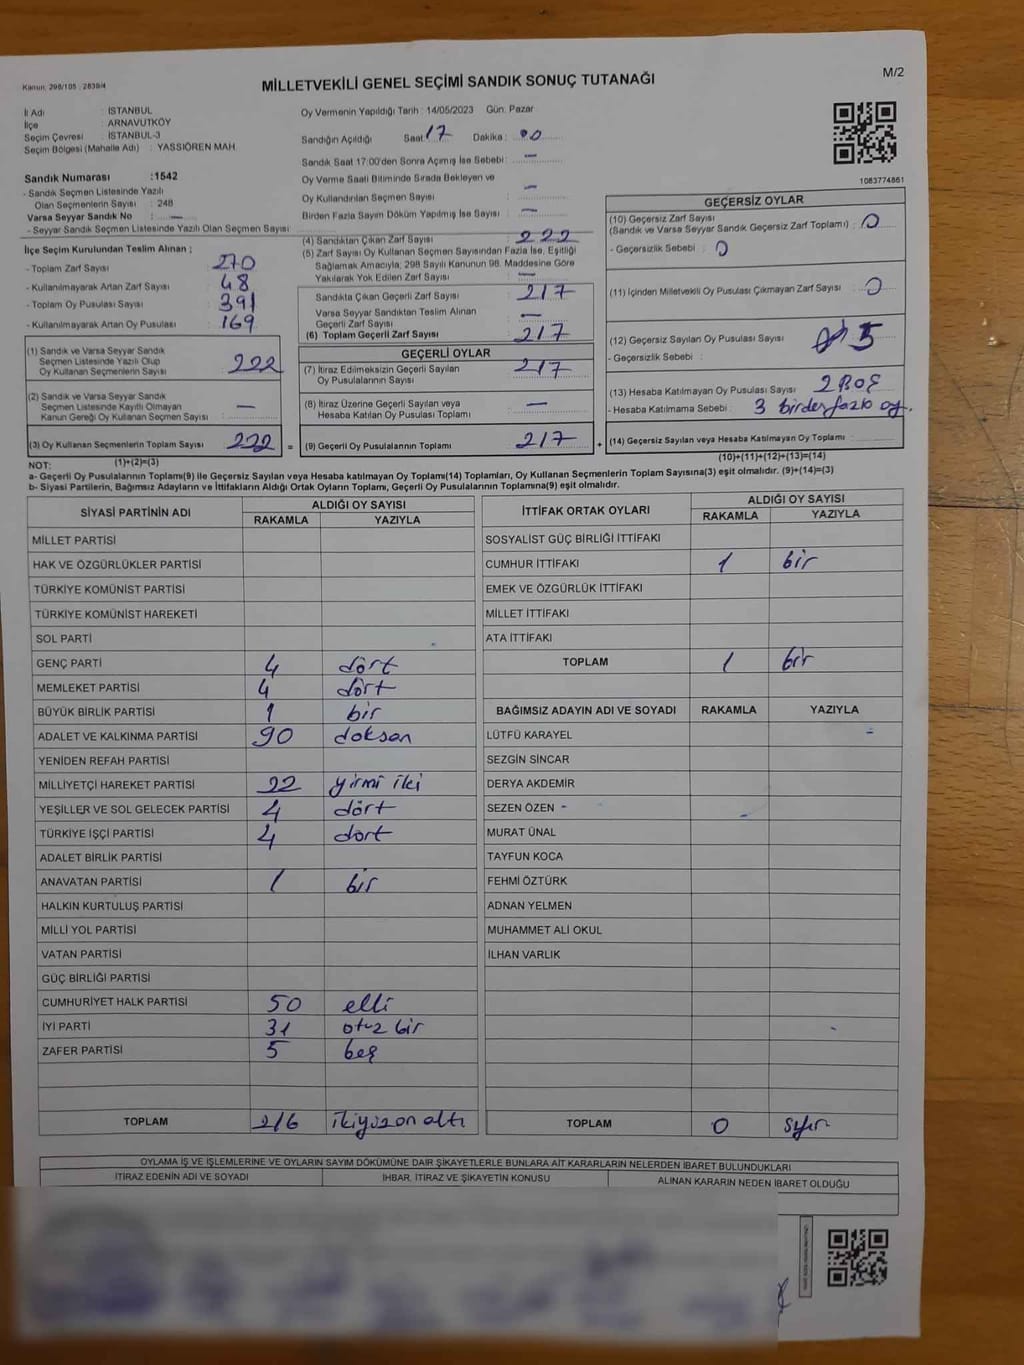 Kanun: 298/105 : 2839/4
MİLLETVEKİLİ GENEL SEÇİMİ SANDIK SONUÇ TUTANAĞI
M/2
İl Adı : İSTANBUL
İlçe : ARNAVUTKÖY
Seçim Çevresi : İSTANBUL-3
Seçim Bölgesi (Mahalle Adı) : YASSIÖREN MAH
Oy Vermenin Yapıldığı Tarih : 14/05/2023 Gün: Pazar
Sandığın Açıldığı Saat: 17 Dakika : 00
Sandık Saat 17:00'den Sonra Açımış İse Sebebi: —
Oy Verme Saati Bitiminde Sırada Bekleyen ve
Oy Kullandırılan Seçmen Sayısı —
Birden Fazla Sayım Döküm Yapılmış İse Sayısı : —
1083774861
Sandık Numarası :1542
- Sandık Seçmen Listesinde Yazılı
Olan Seçmenlerin Sayısı : 248
Varsa Seyyar Sandık No : —
- Seyyar Sandık Seçmen Listesinde Yazılı Olan Seçmen Sayısı
İlçe Seçim Kurulundan Teslim Alınan ;
- Toplam Zarf Sayısı : 270
- Kullanılmayarak Artan Zarf Sayısı : 48
- Toplam Oy Pusulası Sayısı : 391
- Kullanılmayarak Artan Oy Pusulası : 169
(1) Sandık ve Varsa Seyyar Sandık
Seçmen Listesinde Yazılı Olup
Oy Kullanan Seçmenlerin Sayısı : 222
(2) Sandık ve Varsa Seyyar Sandık
Seçmen Listesinde Kayıtlı Olmayan
Kanun Gereği Oy Kullanan Seçmen Sayısı : —
(3) Oy Kullanan Seçmenlerin Toplam Sayısı : 222 =
(1)+(2)=(3)
(4) Sandıktan Çıkan Zarf Sayısı : 222
(5) Zarf Sayısı Oy Kullanan Seçmen Sayısından Fazla İse, Eşitliği
Sağlamak Amacıyla, 298 Sayılı Kanunun 98. Maddesine Göre
Yakılarak Yok Edilen Zarf Sayısı : —
Sandıkta Çıkan Geçerli Zarf Sayısı : 217
Varsa Seyyar Sandıktan Teslim Alınan
Geçerli Zarf Sayısı : —
(6) Toplam Geçerli Zarf Sayısı : 217
GEÇERLİ OYLAR
(7) İtiraz Edilmeksizin Geçerli Sayılan
Oy Pusulalarının Sayısı : 217
(8) İtiraz Üzerine Geçerli Sayılan veya
Hesaba Katılan Oy Pusulası Toplamı : —
(9) Geçerli Oy Pusulalarının Toplamı : 217 +
GEÇERSİZ OYLAR
(10) Geçersiz Zarf Sayısı
(Sandık ve Varsa Seyyar Sandık Geçersiz Zarf Toplamı) : 0
- Geçersizlik Sebebi : 0
(11) İçinden Milletvekili Oy Pusulası Çıkmayan Zarf Sayısı : 0
(12) Geçersiz Sayılan Oy Pusulası Sayısı : 5
- Geçersizlik Sebebi :
(13) Hesaba Katılmayan Oy Pusulası Sayısı : 2 BOŞ
- Hesaba Katılmama Sebebi : 3 birden fazla oy.
(14) Geçersiz Sayılan veya Hesaba Katılmayan Oy Toplamı :
(10)+(11)+(12)+(13)=(14)
NOT:
a- Geçerli Oy Pusulalarının Toplamı(9) ile Geçersiz Sayılan veya Hesaba katılmayan Oy Toplamı(14) Toplamları, Oy Kullanan Seçmenlerin Toplam Sayısına(3) eşit olmalıdır. (9)+(14)=(3)
b- Siyasi Partilerin, Bağımsız Adayların ve İttifakların Aldığı Ortak Oyların Toplamı, Geçerli Oy Pusulalarının Toplamına(9) eşit olmalıdır.
SİYASİ PARTİNİN ADI ALDIĞI OY SAYISI
RAKAMLA YAZIYLA
MİLLET PARTİSİ
HAK VE ÖZGÜRLÜKLER PARTİSİ
TÜRKİYE KOMÜNİST PARTİSİ
TÜRKİYE KOMÜNİST HAREKETİ
SOL PARTİ
GENÇ PARTİ 4 dört
MEMLEKET PARTİSİ 4 dört
BÜYÜK BİRLİK PARTİSİ 1 bir
ADALET VE KALKINMA PARTİSİ 90 doksan
YENİDEN REFAH PARTİSİ
MİLLİYETÇİ HAREKET PARTİSİ 22 yirmi iki
YEŞİLLER VE SOL GELECEK PARTİSİ 4 dört
TÜRKİYE İŞÇİ PARTİSİ 4 dört
ADALET BİRLİK PARTİSİ
ANAVATAN PARTİSİ 1 bir
HALKIN KURTULUŞ PARTİSİ
MİLLİ YOL PARTİSİ
VATAN PARTİSİ
GÜÇ BİRLİĞİ PARTİSİ
CUMHURİYET HALK PARTİSİ 50 elli
İYİ PARTİ 31 otuz bir
ZAFER PARTİSİ 5 beş
TOPLAM 216 ikiyüzon altı
İTTİFAK ORTAK OYLARI ALDIĞI OY SAYISI
RAKAMLA YAZIYLA
SOSYALİST GÜÇ BİRLİĞİ İTTİFAKI
CUMHUR İTTİFAKI 1 bir
EMEK VE ÖZGÜRLÜK İTTİFAKI
MİLLET İTTİFAKI
ATA İTTİFAKI
TOPLAM 1 bir
BAĞIMSIZ ADAYIN ADI VE SOYADI RAKAMLA YAZIYLA
LÜTFÜ KARAYEL
SEZGİN SİNCAR
DERYA AKDEMİR
SEZEN ÖZEN
MURAT ÜNAL
TAYFUN KOCA
FEHMİ ÖZTÜRK
ADNAN YELMEN
MUHAMMET ALİ OKUL
İLHAN VARLIK
TOPLAM 0 sıfır
OYLAMA İŞ VE İŞLEMLERİNE VE OYLARIN SAYIM DÖKÜMÜNE DAİR ŞİKAYETLERLE BUNLARA AİT KARARLARIN NELERDEN İBARET BULUNDUKLARI
İTİRAZ EDENİN ADI VE SOYADI İHBAR, İTİRAZ VE ŞİKAYETİN KONUSU ALINAN KARARIN NEDEN İBARET OLDUĞU